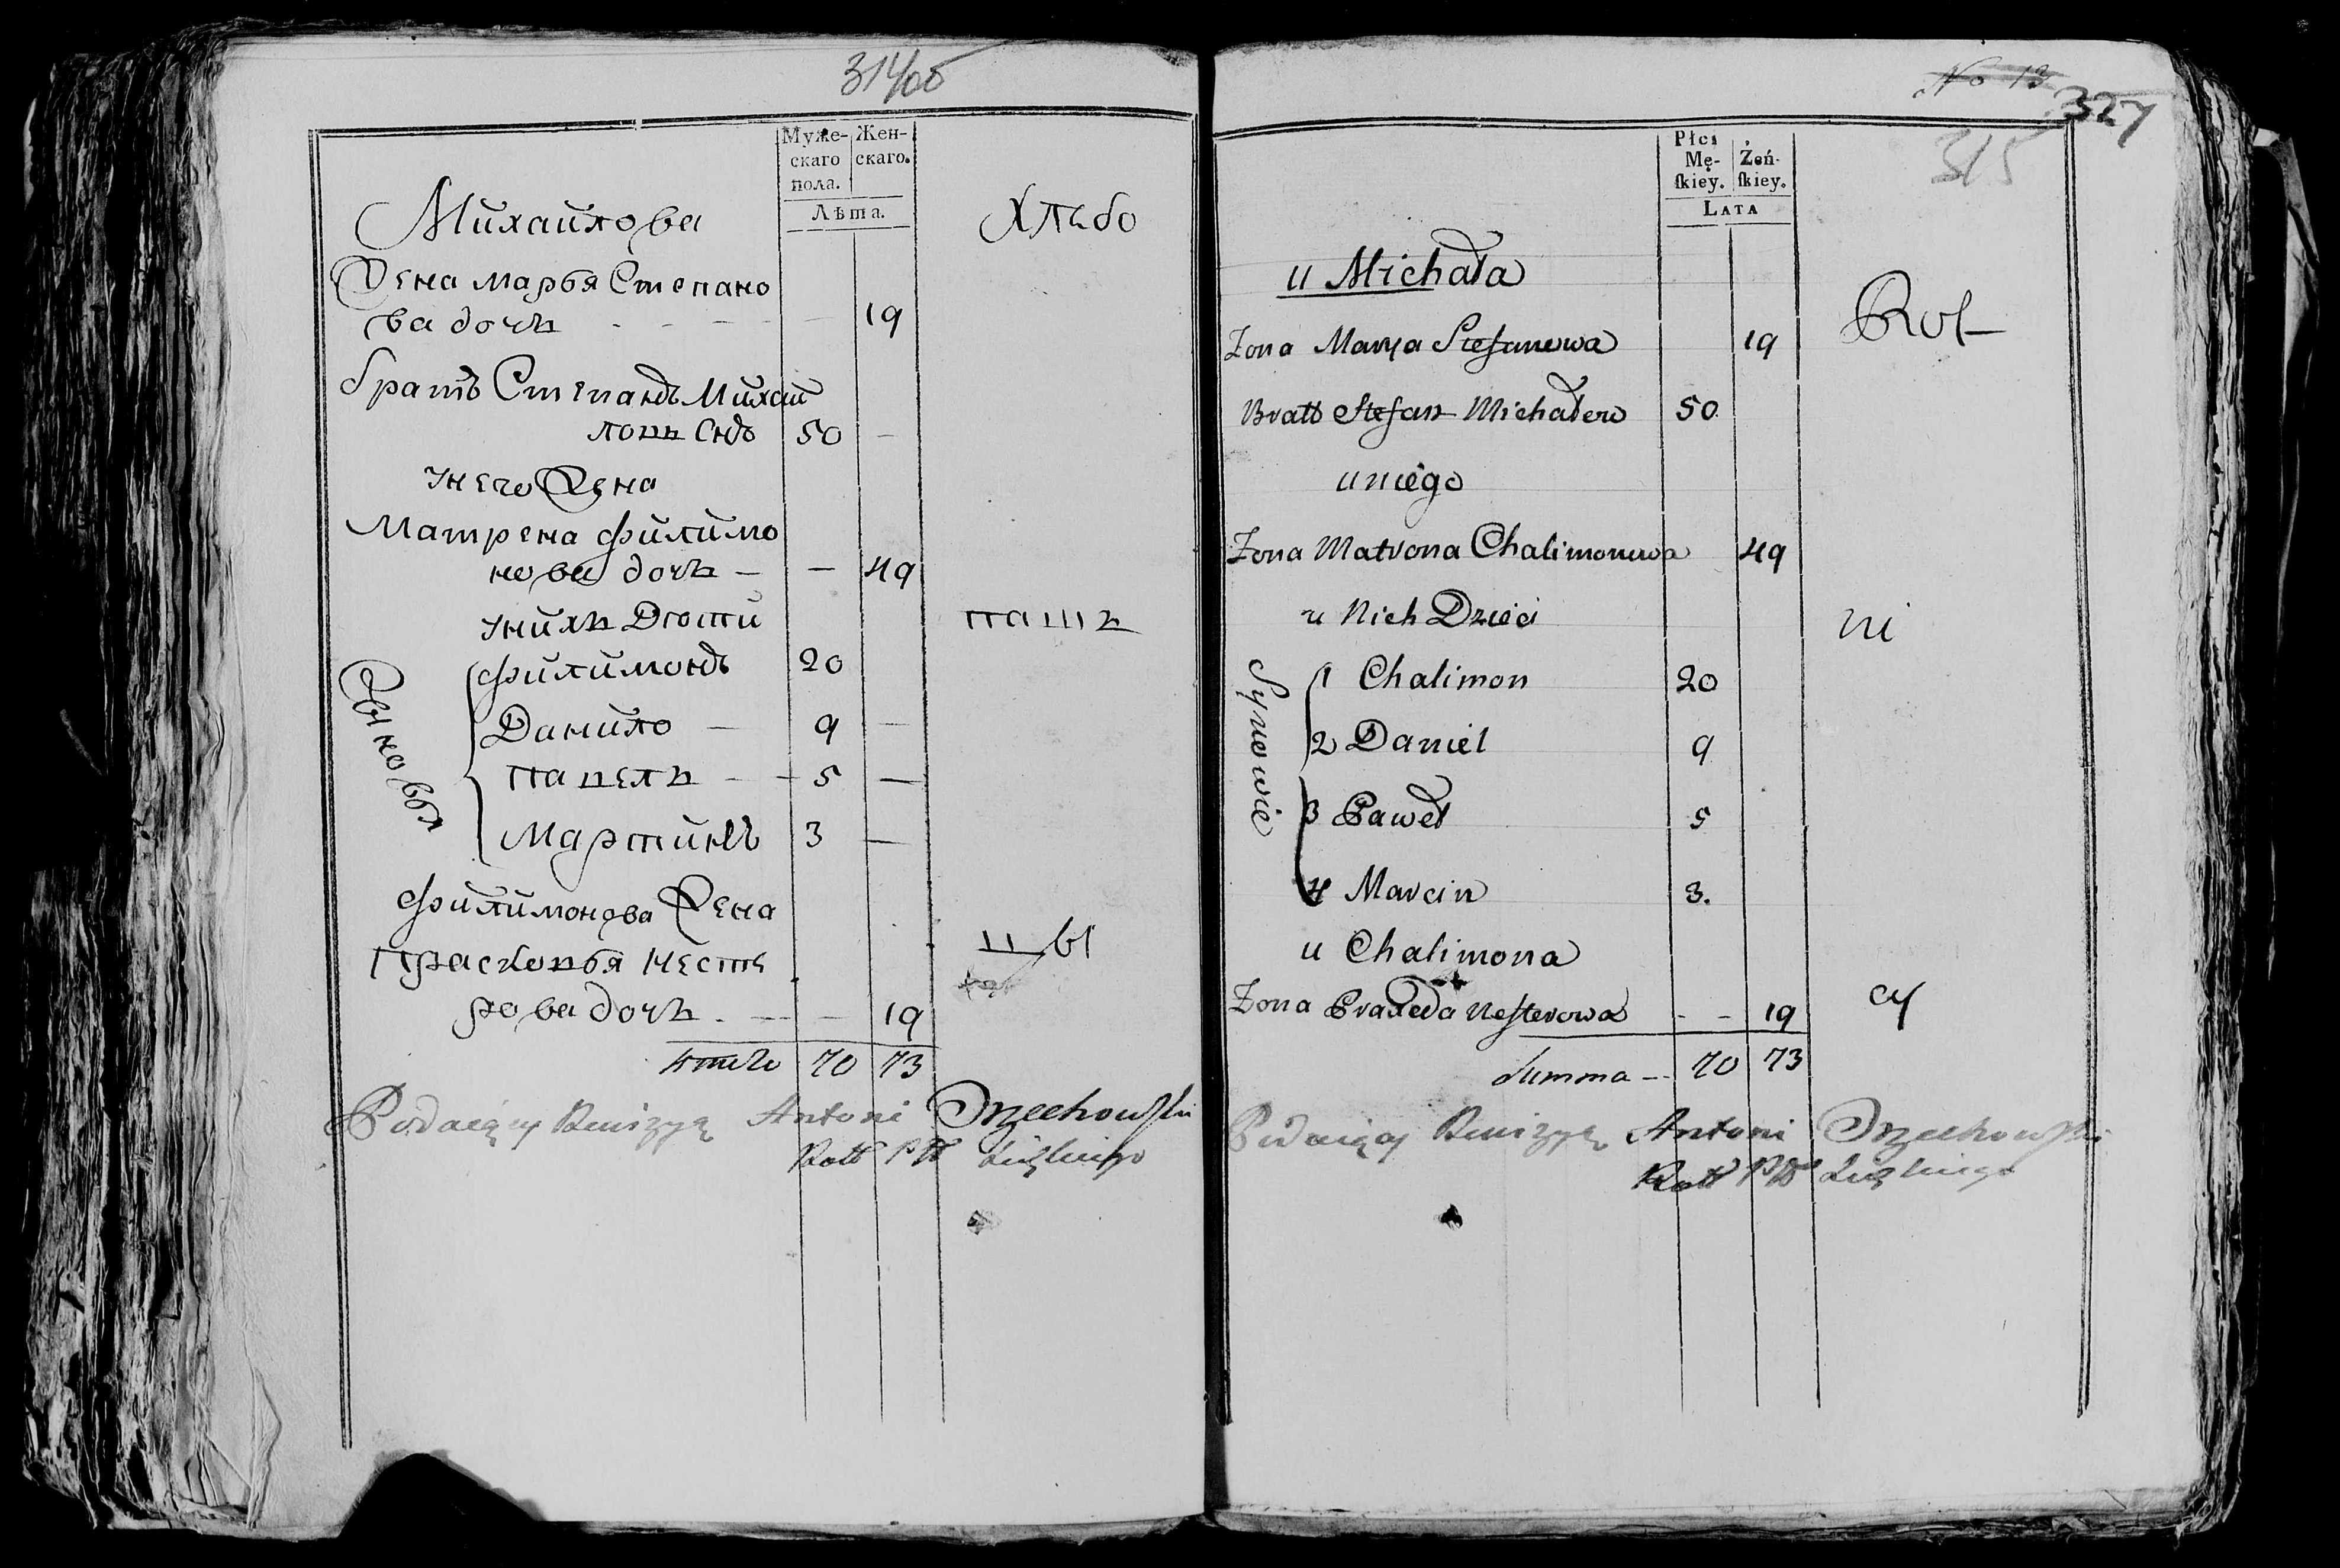 314об
Муже-
скаго
пола.
Жен-
скаго.
Лѣта.
Михайлова
Хлѣбо
Жена Марья Степано
ва дочь - - - - 19
братъ Степанъ Михай
ловъ Снъ 50 -
унего Жена
Матрена Филимо
нова дочь - - 49
унихъ Дѣти
паш
Сыновья
Филимонъ 20
Данило - 9 -
Павелъ - - 5 -
Мартинъ 3 -
Филимонова Жена
цы
Прасковья Несте
рова дочь - - - 19
итого 70 73
Podaiący Rewizyą Antoni Orzechowski
Rott PW
No 13
327
315
Płci
Mę-
skiey.
Żeń-
skiey.
LATA
u Michała
Rol-
Zona Marya Stefanowa 19
Bratt Stefan Michałow 50
uniego
Zona Matrona Chalimonowa 49
u Nich Dzieci
ni
Synowie
1 Chalimon 20
2 Daniel 9
3 Paweł 5
4 Marcin 3.
u Chalimona
Zona Praxeda Nesterowa - - 19
cy
Summa -- 70 73
Podaiący Rewizyą Antoni Orzechowski
Rott PW